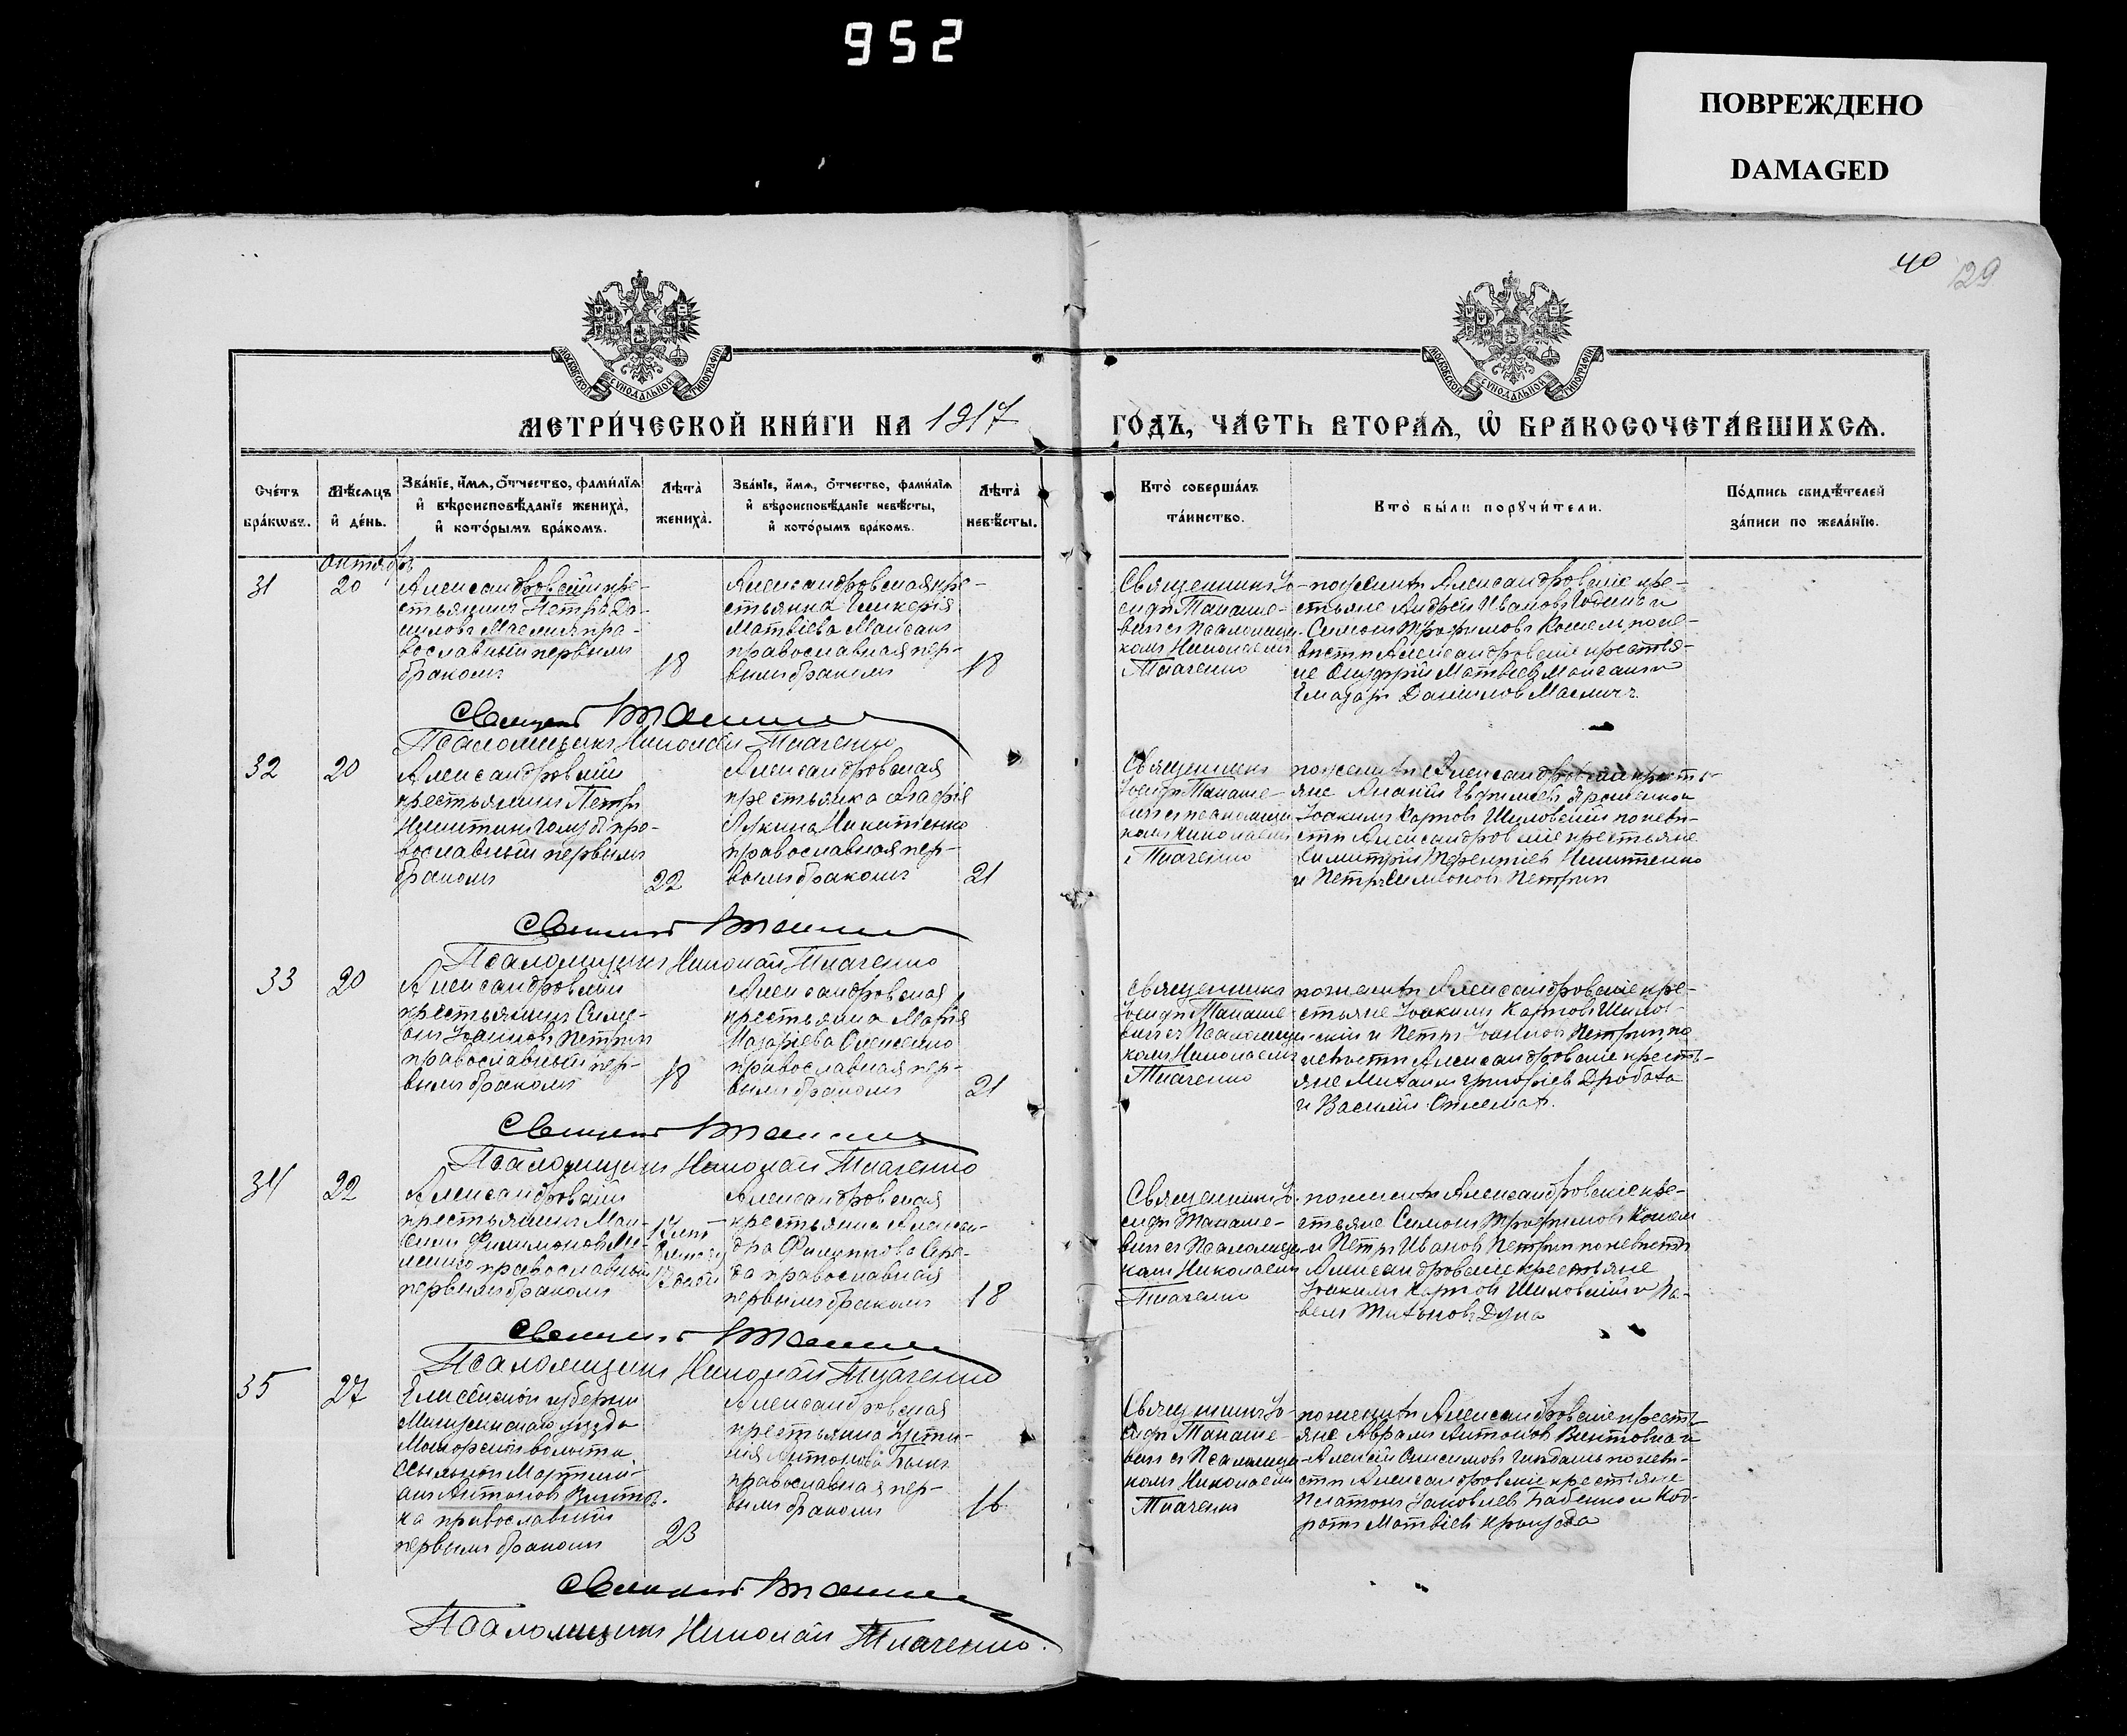 952
ПОВРЕЖДЕНО
DAMAGED
40 129
МОСКОВСКОЙ СѴНОДАЛЬНОЙ ТИПОГРАФІИ
МОСКОВСКОЙ СѴНОДАЛЬНОЙ ТИПОГРАФІИ
МЕТРИ́ЧЕСКОЙ КНИ́ГИ НА 1917
ГО́ДЪ, ЧА́СТЬ ВТОРА́Я, Ѿ БРАКОСОЧЕТА́ВШИХСЯ.
Сче́тъ бра́кѡвъ.
Мѣ́сяцъ и҆ де́нь.
Зва́нїе, и҆́мя, ѻ҆́тчество, фами́лїя и҆ вѣроисповѣ́данїе жениха̀, и҆ кото́рымъ бра́комъ.
Лѣта̀ жениха̀.
Зва́нїе, и҆́мя, ѻ҆́тчество, фами́лїя и҆ вѣроисповѣ́данїе невѣ́сты, и҆ кото́рымъ бра́комъ.
Лѣта̀ невѣ́сты.
Кто̀ соверша́лъ та́инство.
Кто̀ бы́ли порꙋчи́тели.
По́дпись свидѣ́телей за́писи по жела́нїю.
31
октябрь
20
Александровскій кре-
стьянинъ Петръ Да-
ниловъ пра-
вославный первымъ
бракомъ
18
Александровская кре-
стьянка Гликерія
Матвіева Мойсакъ
православная пер-
вымъ бракомъ
18
Священникъ Іо-
сифъ Танаше-
вичъ съ псаломщи-
комъ Николаемъ
Ткаченко
по женихѣ Александровскіе кре-
стьяне Андрей Ивановъ и
Симонъ Трофимовъ по не-
вѣстѣ Александровскіе крестья-
не Онуфрій Матвіевъ Мойсакъ и
Даниловъ
Псаломщикъ Николай Ткаченко
32
20
Александровскій
крестьянинъ Петръ
Никитинъ Голубъ пра-
вославный первымъ
бракомъ
22
Александровская
крестьянка Агафія
Никитенко
православная пер-
вымъ бракомъ
21
Священникъ
Іосифъ Танаше-
вичъ съ псаломщи-
комъ Николаемъ
Ткаченко
по женихѣ Александровскіе кресть-
яне Ананій Евфиміевъ Ярошенко и
Іоакимъ Карповъ Шиловскій по невѣ-
стѣ Александровскіе крестьяне
Димитрій Терентіевъ Никитенко
и Петръ Симеоновъ Петрик
Псаломщикъ Николай Ткаченко
33
20
Александровскій
крестьянинъ Симе-
онъ Іоанновъ Петрик
православный пер-
вымъ бракомъ
18
Александровская
крестьянка Марія
Назаріева
православная пер-
вымъ бракомъ
21
Священникъ
Іосифъ Танаше-
вичъ съ Псаломщи-
комъ Николаемъ
Ткаченко
по женихѣ Александровскіе кре-
стьяне Іоакимъ Карповъ Шилов-
скій и Петръ Іоанновъ Петрик, по
невѣстѣ Александровскіе кресть-
яне Михаилъ Григоріевъ Дробаха
и Василій
Псаломщикъ Николай Ткаченко
34
22
Александровскій
крестьянинъ Мак-
симъ Филимоновъ
православный
первымъ бракомъ
17 лѣтъ
Александровская
крестьянка Алексан-
дра Филиппова
православная
первымъ бракомъ
18
Священникъ Іо-
сифъ Танаше-
вичъ съ Псаломщи-
комъ Николаемъ
Ткаченко
по женихѣ Александровскіе кре-
стьяне Симонъ Трофимовъ
и Петръ Ивановъ Петрик по невѣстѣ
Александровскіе крестьяне
Іоакимъ Карповъ Шиловскій и Па-
велъ Титовъ
Псаломщикъ Николай Ткаченко
35
27
Енисейской губерніи
Минусинскаго уѣзда
волости
Антоновъ
православный
первымъ бракомъ
23
Александровская
крестьянка Усти-
нія Антонова
православная пер-
вымъ бракомъ
16
Священникъ Іо-
сифъ Танаше-
вичъ съ Псаломщи-
комъ Николаемъ
Ткаченко
по женихѣ Александровскіе кресть-
яне Аврамъ Антоновъ и
Алексій Онисимовъ по невѣ-
стѣ Александровскіе крестьяне
Платонъ Іаковлевъ Бабенко и Код-
ратъ Матвіевъ
Псаломщикъ Николай Ткаченко.